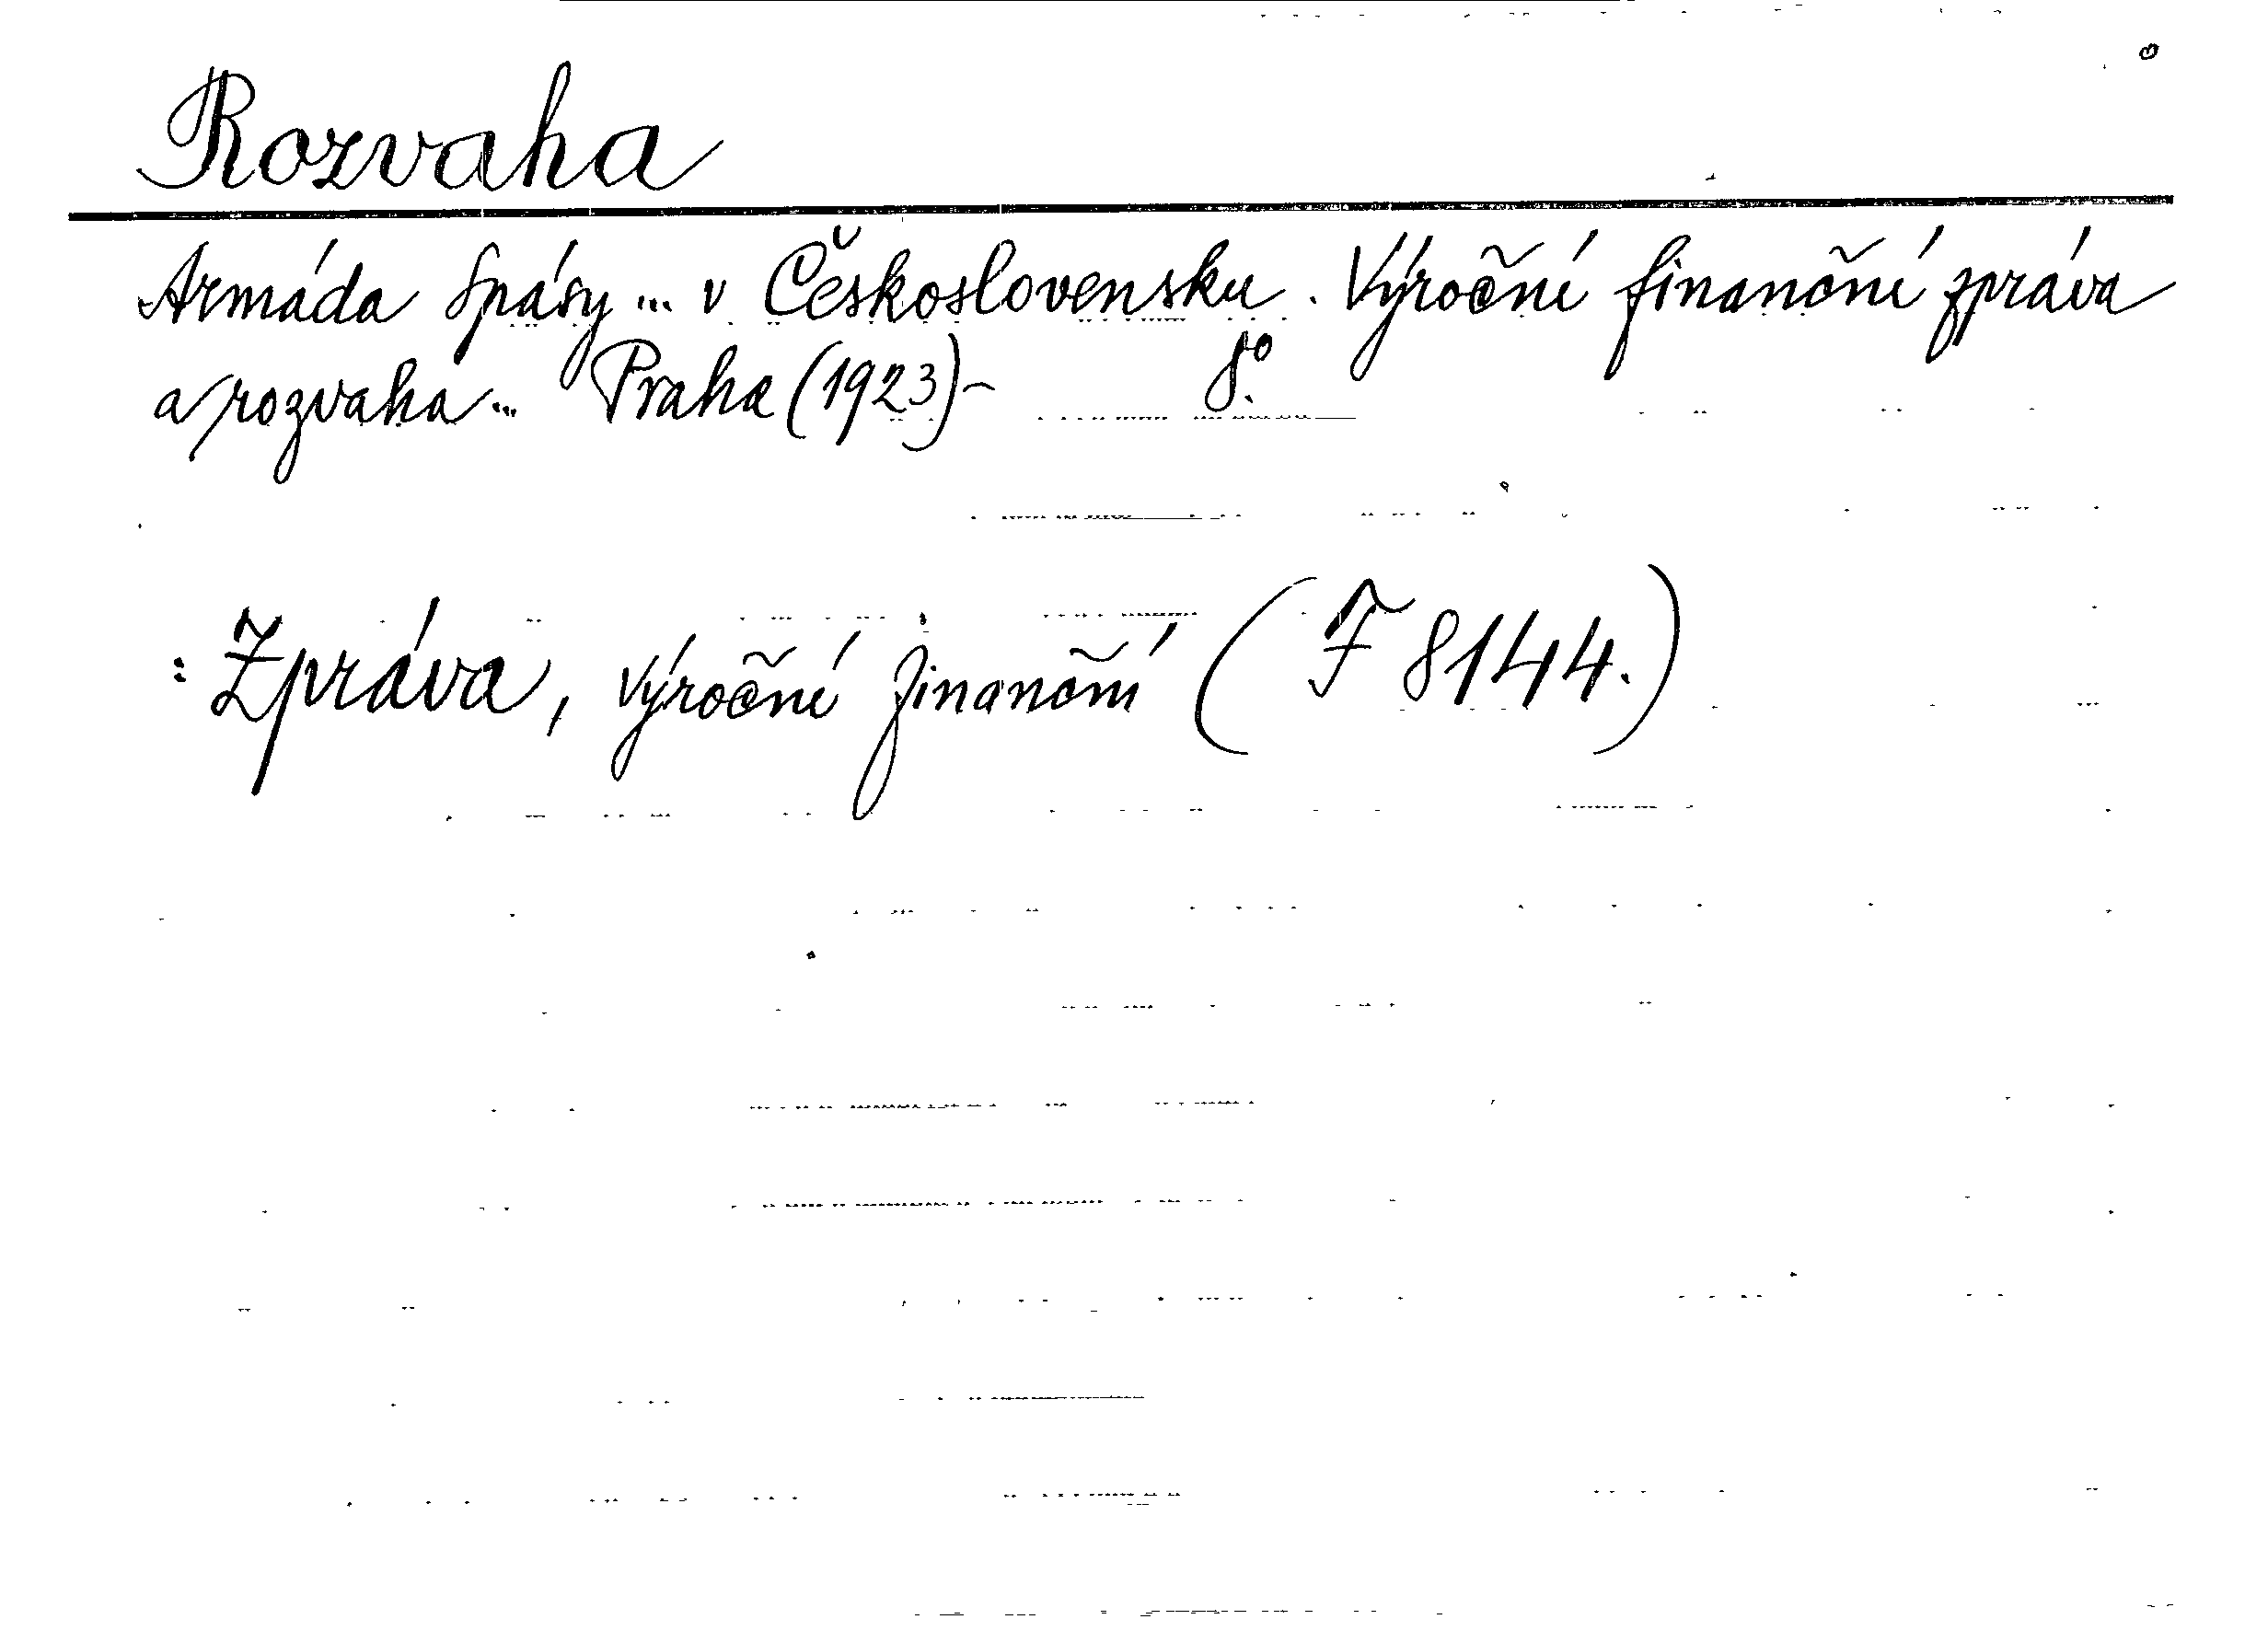 Rozvaha
Armáda Spásy ... v Československu. Výroční finanční zpráva
a rozvaha ... Praha (1923)- 8°.
: Zpráva, výroční finanční (F 8144.)